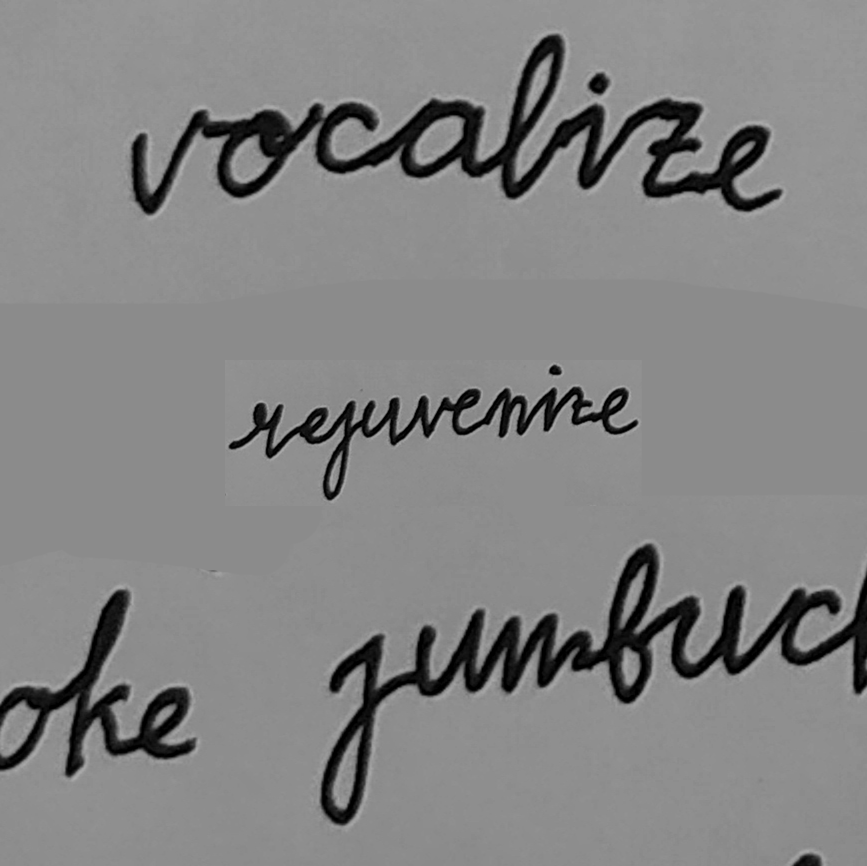 vocalize
rejuvenize
oke jumbuc